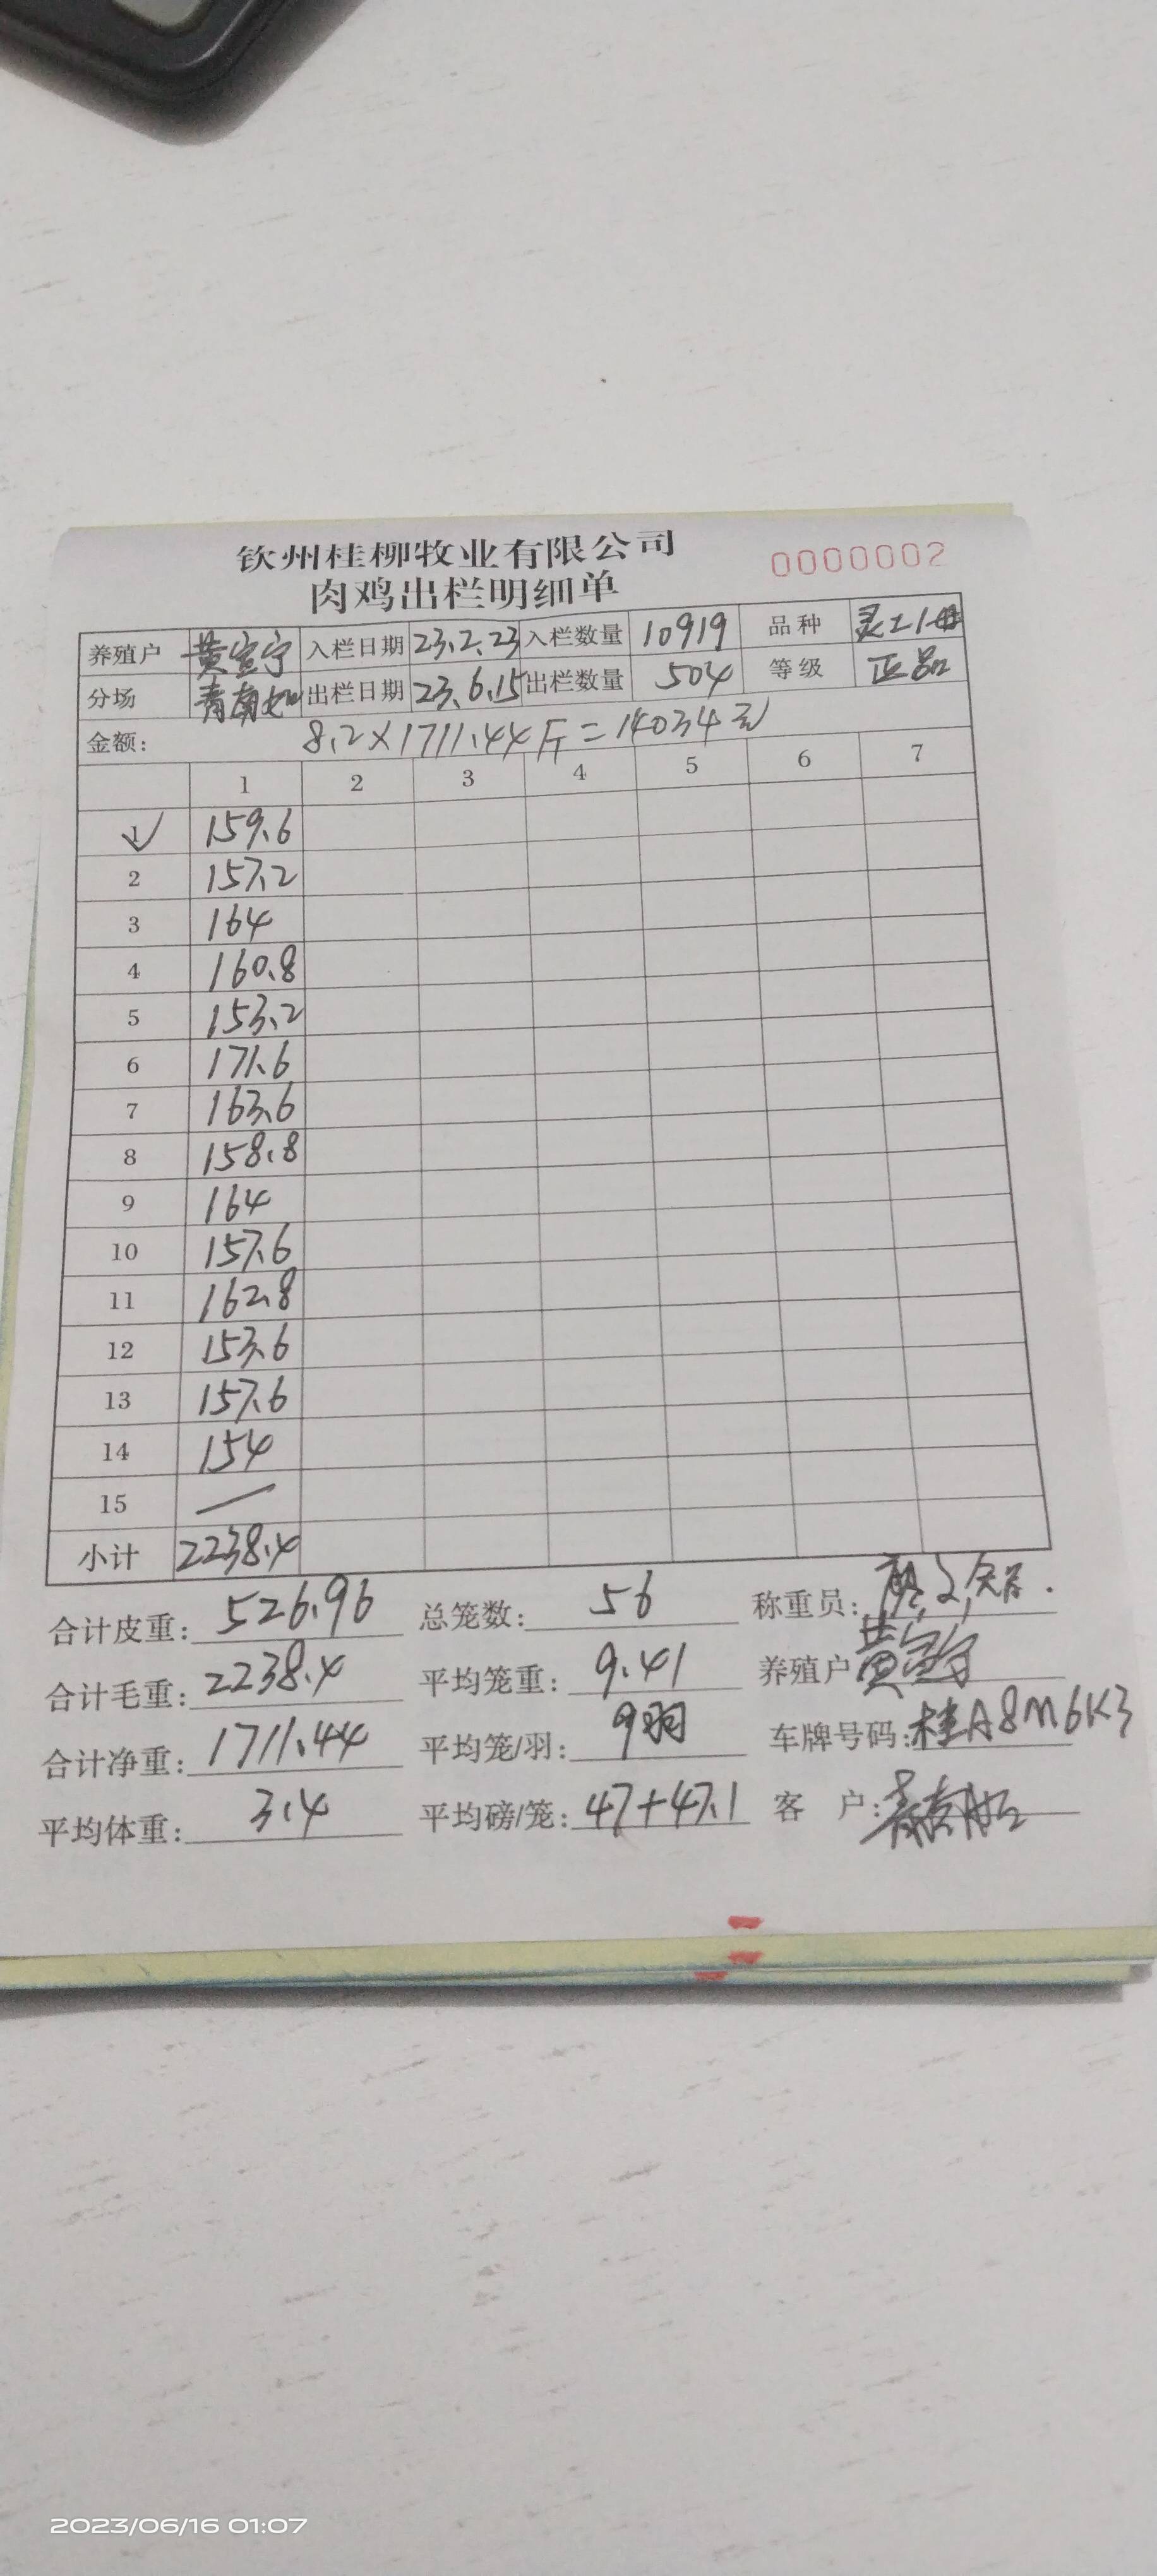 钦州桂柳牧业有限公司
肉鸡出栏明细单 0000002
养殖户 黄宝宁 入栏日期 23.2.23 入栏数量 10919 品种 灵乙1母
分场 出栏日期 23.6.15 出栏数量 504 等级 正品
金额: 8.2×1711.44斤=14034元
1 2 3 4 5 6 7
1 159.6
2 157.2
3 164
4 160.8
5 153.2
6 171.6
7 163.6
8 158.8
9 164
10 157.6
11 162.8
12 153.6
13 157.6
14 154
15 —
小计 2238.4
合计皮重: 526.96 总笼数: 56 称重员:
合计毛重: 2238.4 平均笼重: 9.41 养殖户 黄宝宁
合计净重: 1711.44 平均笼/羽: 9羽 车牌号码: 桂A8M6K3
平均体重: 3.4 平均磅/笼: 47+47.1 客户:
2023/06/16 01:07